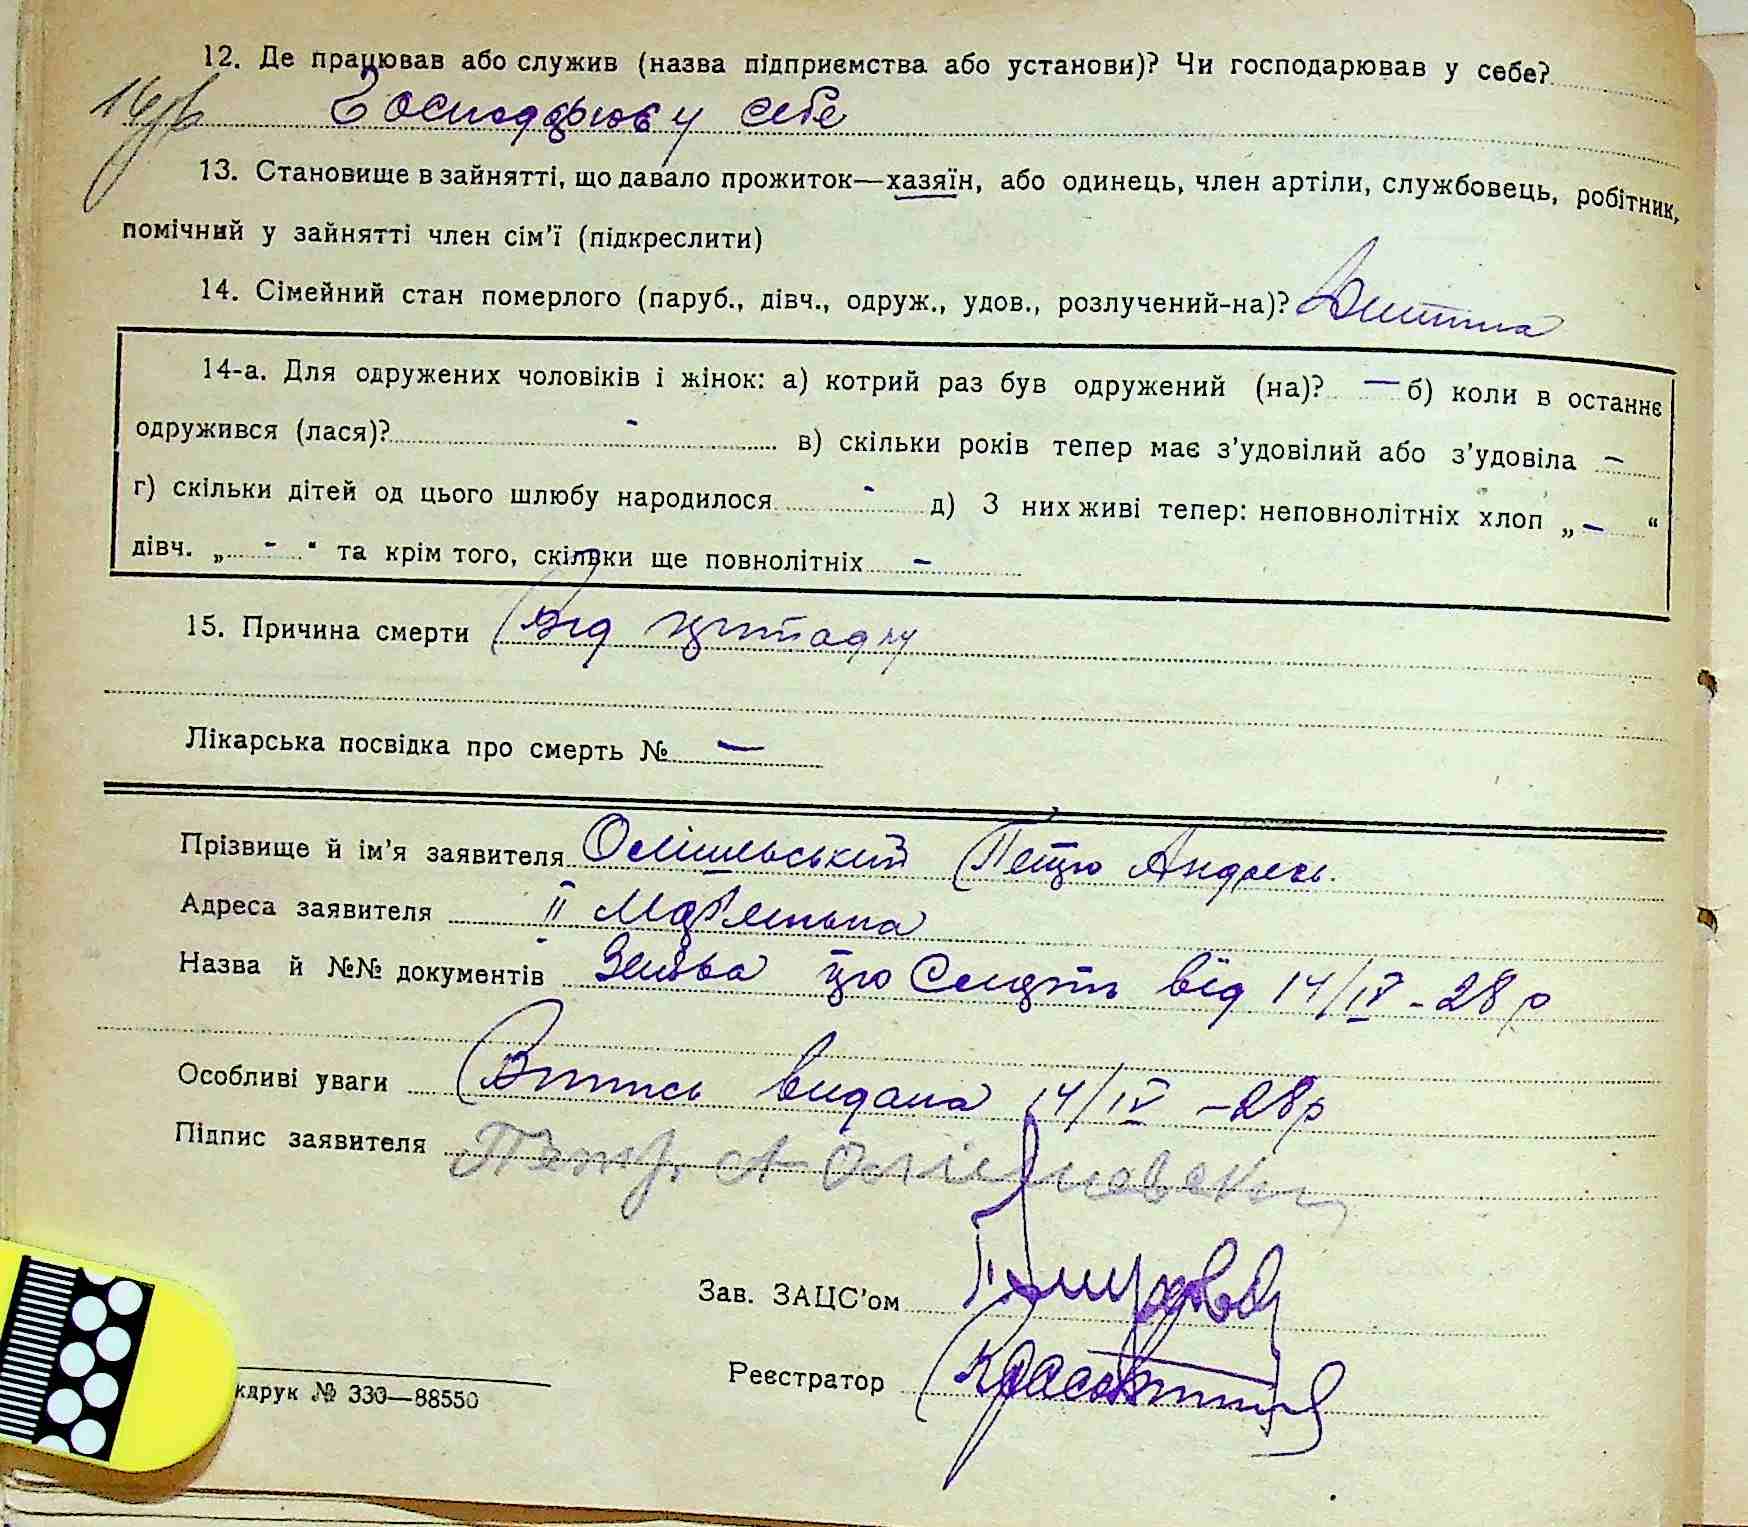 12. Де працював або служив (назва підприємства або установи)? Чи господарював у себе?
Господарює у себе
13. Становище в зайнятті, що давало прожиток—хазяїн, або одинець, член артіли, службовець, робітник,
помічний у зайнятті член сім'ї (підкреслити)
14. Сімейний стан померлого (паруб., дівч., одруж., удов., розлучений-на)? Дитина
14-а. Для одружених чоловіків і жінок: а) котрий раз був одружений (на)? — б) коли в останнє
одружився (лася)? - в) скільки років тепер має з'удовілий або з'удовіла –
г) скільки дітей од цього шлюбу народилося - д) З них живі тепер: неповнолітніх хлоп „ – “
дівч. „ - “ та крім того, скільки ще повнолітніх –
15. Причина смерти Від
Лікарська посвідка про смерть № —
Прізвище й ім'я заявителя Петро Андрєєв.
Адреса заявителя ІІ
Назва й №№ документів Заява про Смерть від 14/IV - 28 р
Особливі уваги Випись видана 14/IV – 28 р
Підпис заявителя Петр. А
Зав. ЗАЦС'ом
Реєстратор
кдрук № 330—88550